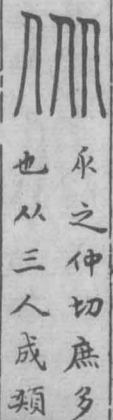 乑
乑之仲切庶多
也从三人成類